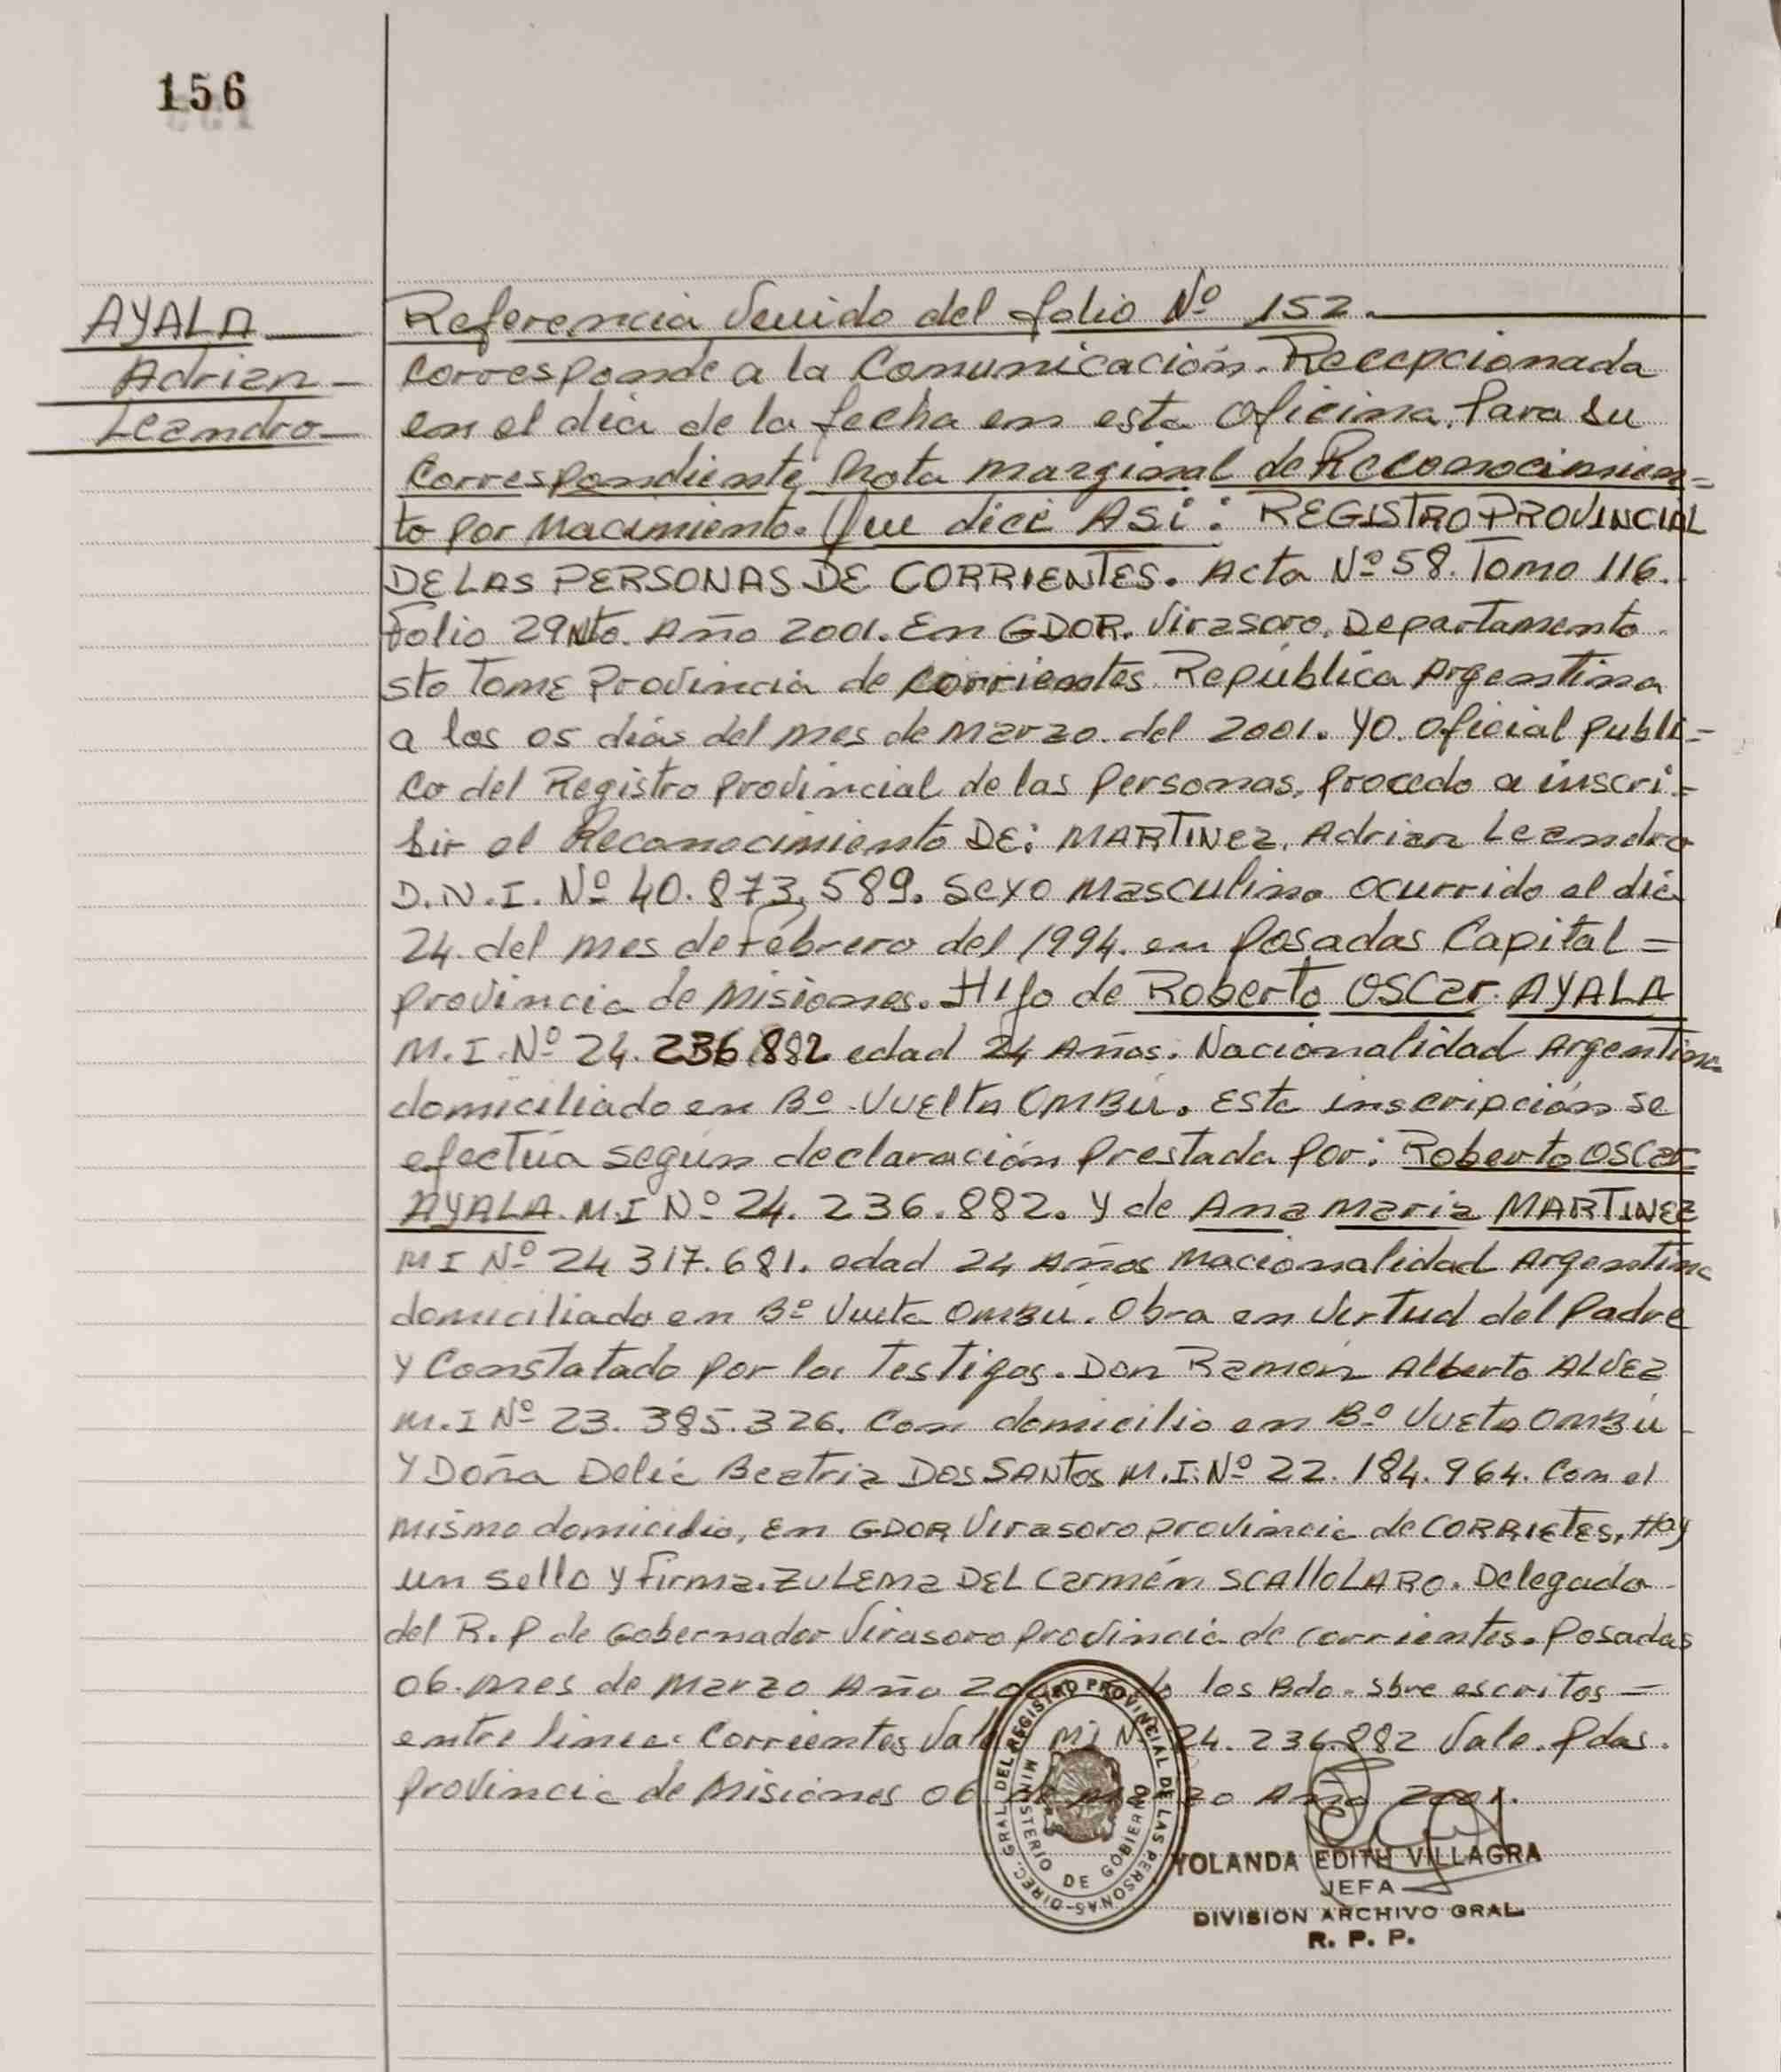 156
AYALA
Adrian
Leandro
Referencia Venido del folio Nº 152.
Corresponde a la Comunicación. Recepcionada
en el dia de la fecha en esta Oficina. Para su
Correspondiente Nota marginal de Reconocimien=
to por Nacimiento. Que dice Asi: REGISTRO PROVINCIAL
DE LAS PERSONAS DE CORRIENTES. Acta Nº 58. Tomo 116.
Folio 29 Vto. Año 2001. En GDOR. Virasoro. Departamento
Sto Tome Provincia de Corrientes República Argentina
a los 05 dias del mes de Marzo. del 2001. Yo. Oficial publi=
co del Registro provincial de las personas, procedo a inscri=
bir el Reconocimiento DE: MARTINEZ, Adrian Leandro
D.N.I. Nº 40.873.589. Sexo Masculino ocurrido el dia
24 del mes de Febrero del 1994. en Posadas Capital =
provincia de Misiones. Hijo de Roberto Oscar AYALA
M.I. Nº 24.236.882 edad 24 Años. Nacionalidad Argentina
domiciliado en Bº Vuelta OMBÚ. Esta inscripción se
efectúa según declaración prestada por: Roberto Oscar
AYALA M.I Nº 24.236.882. Y de Ana Maria MARTINEZ
MI Nº 24 317.681. edad 24 Años Nacionalidad Argentina
domiciliado en Bº Vueta OMBÚ. Obra en Virtud del Padre
Y Constatado por los Testigos. Don Ramón Alberto ALVEZ
M.I Nº 23.385.326. Con domicilio en Bº Vueta OMBÚ
Y Doña Delia Beatriz DOS SANTOS M.I. Nº 22.184.964. Con el
mismo domicilio, En GDOR Virasoro provincia de CORRIETES, Hay
un sello y Firma. ZULEMA DEL Carmén SCALLOLARO. Delegada
del R.P de Gobernador Virasoro provincia de Corrientes. Posadas
06. mes de Marzo Año los Bdo. Sbre escritos =
entre linea: Corrientes Vale MI Nº 24.236.882 Vale. Pdas.
provincia de Misiones 06 de Marzo Año 2001.
DIREC. GRAL DEL REGISTRO PROVINCIAL DE LAS PERSONAS
MINISTERIO DE GOBIERNO
YOLANDA EDITH VILLAGRA
JEFA
DIVISION ARCHIVO GRAL
R. P. P.